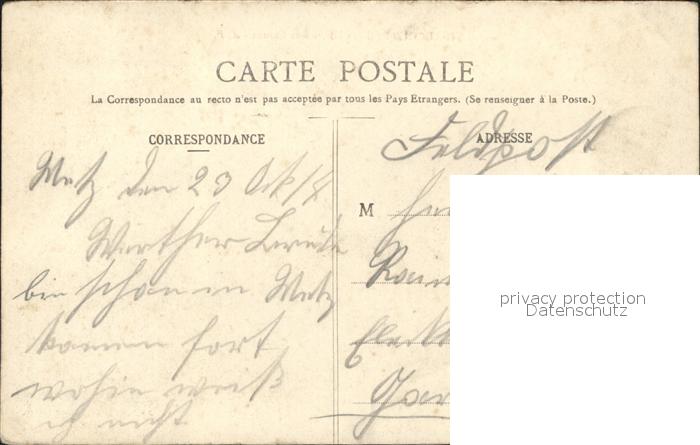 CARTE POSTALE
La Correspondance au recto n'est pas acceptée par tous les Pays Etrangers. (Se renseigner à la Poste.)
CORRESPONDANCE
Metz den 23 Okt 14
Werther
bin schon in Metz
kommen fort
wohin weiß
ich nicht
ADRESSE
Feldpost
M
privacy protection
Datenschutz